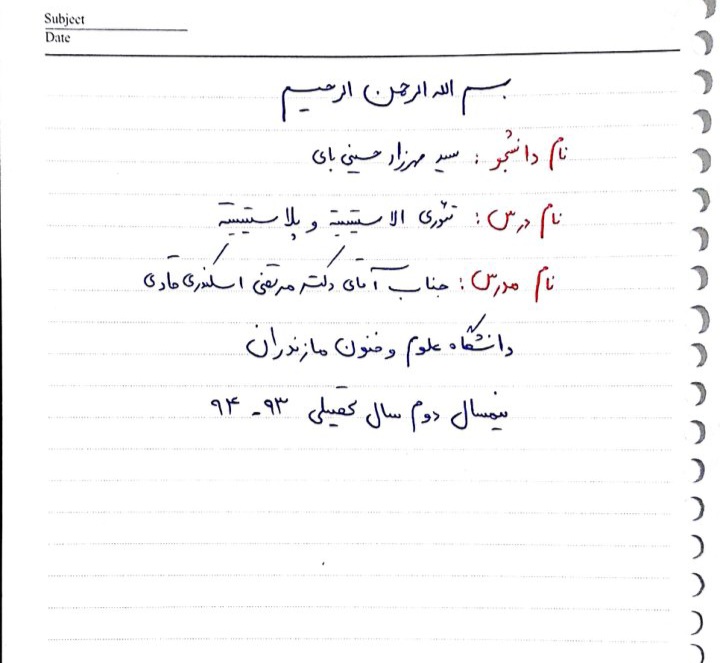 Subject
Date
بسم الله الرحمن الرحیم
نام دانشجو : سید مهرزاد حسینی بای
نام درس : تئوری الاستیسیته و پلاستیسیته
نام مدرس : جناب آقای دکتر مرتضی اسکندری قادی
دانشگاه علوم و فنون مازندران
نیمسال دوم سال تحصیلی ۹۳ - ۹۴